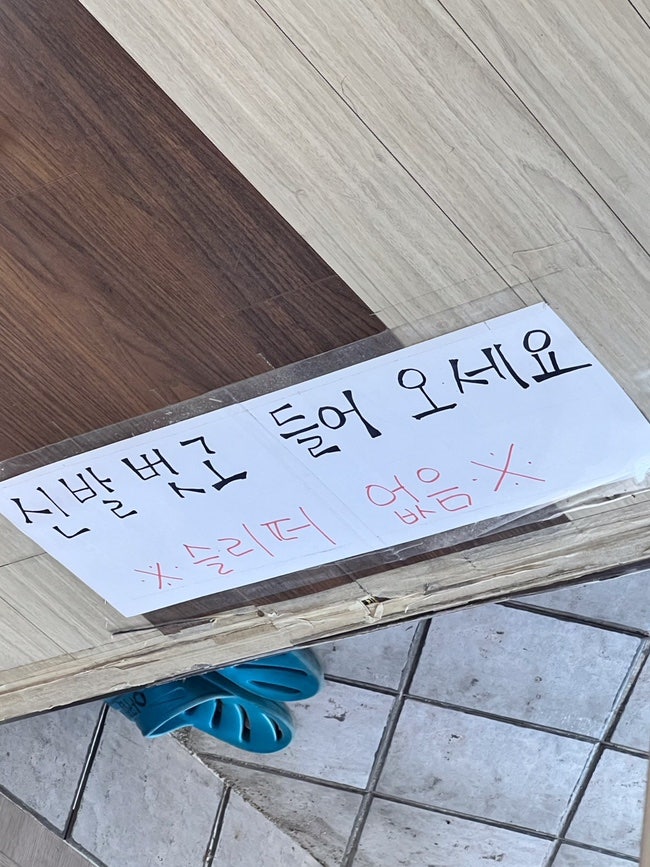 신발 벗고 들어 오세요
※슬리퍼 없음※